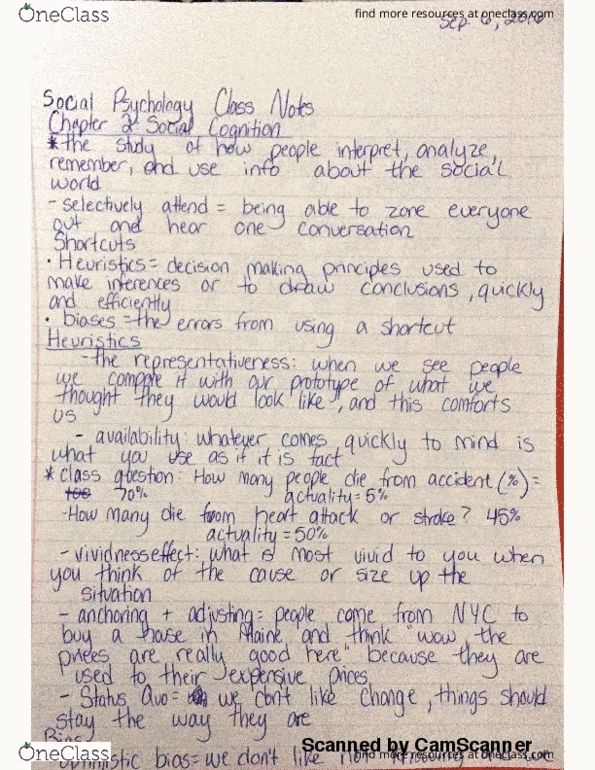 OneClass
find more resources at oneclass.com
Sep. 6, 2016
Social Psychology Class Notes
Chapter 2: Social Cognition
*the study of how people interpret, analyze,
remember, and use info about the social
world
- selectively attend = being able to zone everyone
out and hear one conversation
Shortcuts
• Heuristics = decision making principles used to
make inferences or to draw conclusions, quickly
and efficiently
• biases = the errors from using a shortcut
Heuristics
- the representativeness: when we see people
we compare it with our prototype of what we
thought they would look like, and this comforts
us
- availability: whatever comes quickly to mind is
what you use as if it is fact
* class question: How many people die from accident (%) =
70% actuality = 5%
- How many die from heart attack or stroke? 45%
actuality = 50%
- vividness effect: what is most vivid to you when
you think of the cause or size up the
situation
- anchoring + adjusting = people come from NYC to
buy a house in Maine and think "wow, the
prices are really good here" because they are
used to their expensive prices
- Status Quo = we don't like change, things should
stay the way they are
Bias
Optimistic bias = we don't like
Scanned by CamScanner
OneClass
find more resources at oneclass.com